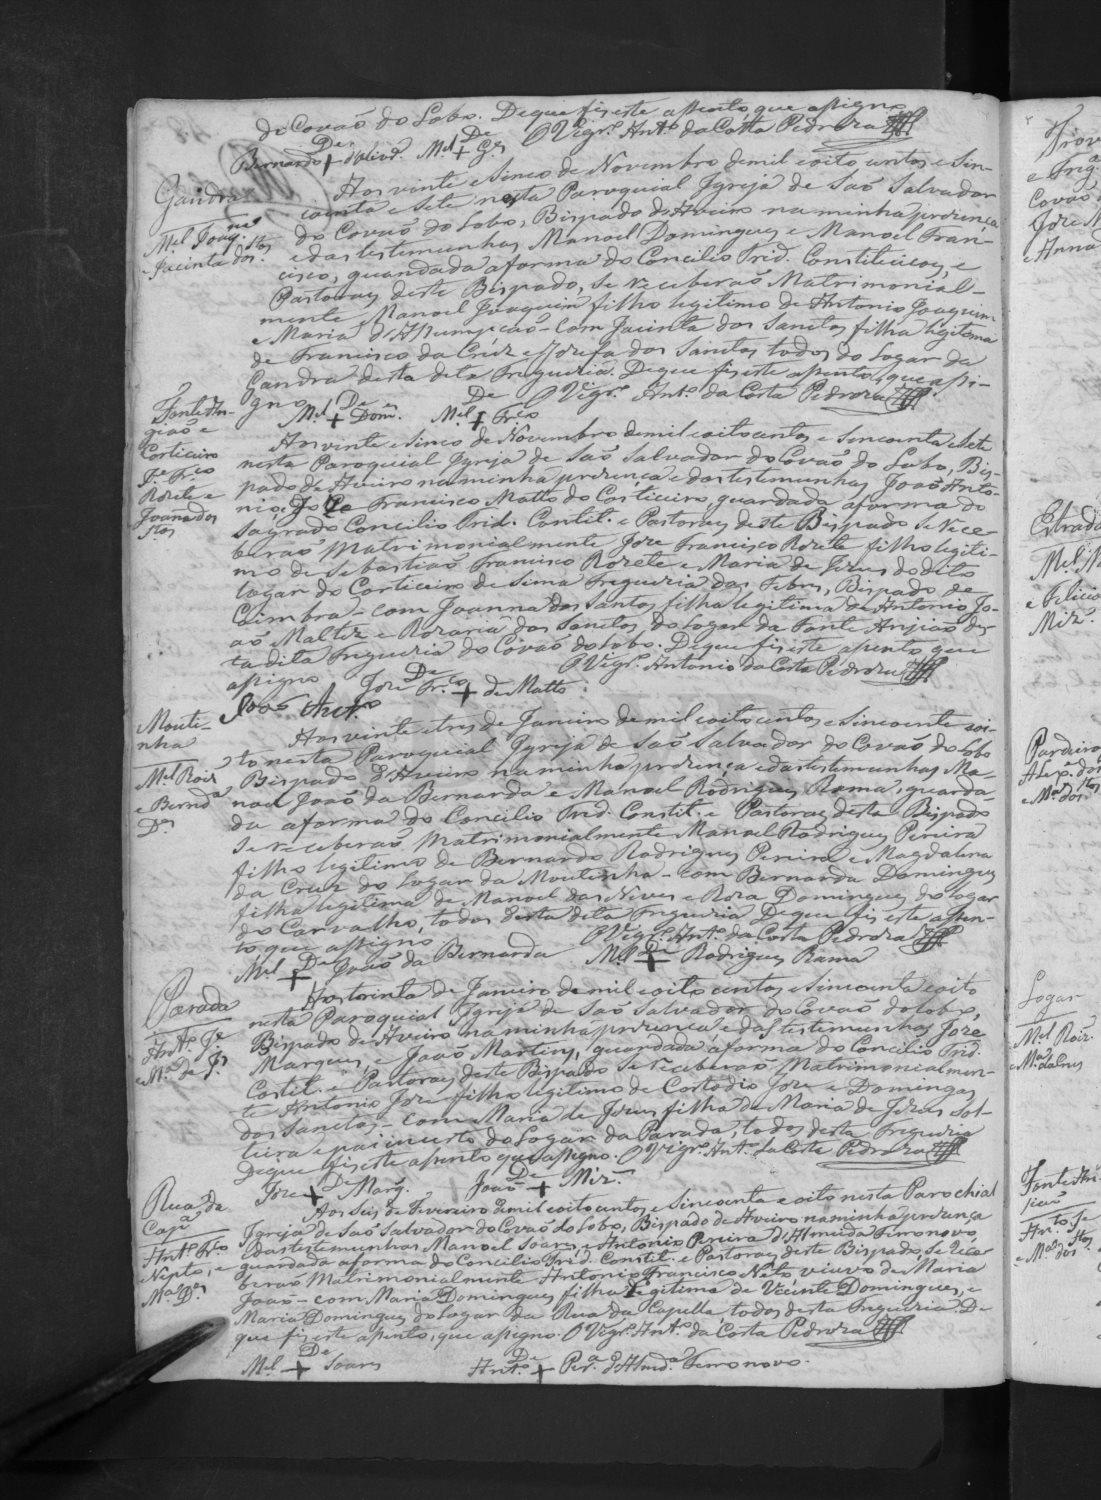 do Covaõ do Lobo. Deque fis este asento, que asigno
O Vigrº Antº da Costa Pedroza
Bernardo De + d'Olivrª Mel De + Gs
Gandra
Mel Joaqm
e Jacinta dos Stos
Aos vinte e sinco de Novembro demil eoito centos e sin-
coenta e sete nesta Paroquial Igreja de Saõ Salvador
do Covaõ do Lobo, Bispado de Aveiro na minha prezença
e das testemunhas Manoel Domingues e Manoel Fran-
cisco, guardada aforma do Concilio Trid. Constituicoes, e
Pastoraes deste Bispado, se receberaõ Matrimonial-
mente Manoel Joaquim filho legitimo de Antonio Joaquim
e Maria d'Asumpçaõ - com Jacinta dos Sanctos filha legitema
de Francisco da Crúz e Jozefa dos Sanctos todos do Lugar da
Gandra desta dita Freguezia. Deque fis este asento, que asi-
gno O Vigrº Antº da Costa Pedroza
Mel De + Domes Mel De + Frco
Fonte An-
giaõ e
Corticeiro
Je Frco
Rozete e
Joanna dos
Stos
Aos vinte e sinco de Novembro demil eoitocentos e sincoenta e sete
nesta Paroquial Igreja de Saõ Salvador do Covaõ do Lobo, Bis-
pado de Aveiro na minha prezença e das testemunhas Joaõ Anto-
nio, Joze Francisco Matto do Corticeiro, guardada aforma do
Sagrado Concilio Trid. Contit. e Pastoraes deste Bispado se rece-
beraõ Matrimonialmente Joze Francisco Rozete filho legiti-
mo de Sebastiaõ Francisco Rozete e Maria de Jezus do dito
lugar do Corticeiro de Sima Freguezia das Febres, Bispado de
Coimbra - com Joanna dos Santos filha legitima de Antonio Jo-
aõ Maltez e Rozaria dos Sanctos do Lugar da Fonte Anjiaõ des-
ta dita Freguezia do Covaõ do Lobo. Deque fis este asento que
asigno O Vigrº Antonio da Costa Pedroza
Joze De Frco + de Matto
Joaõ Antº
Mouti-
nha
Mel Roiz
e Bernda
Des
Aos vinte e tres de Janeiro demil eoito centos e sincoenta eoi-
to nesta Paroquial Igreja de Saõ Salvador do Covaõ do Lobo
Bispado d'Aveiro na minha prezença e das testemunhas Ma-
noel Joaõ da Bernarda e Manoel Rodrigues Rama, guarda-
da aforma do Concilio Trid. Constit. e Pastoraes desta Bispado
se receberaõ Matrimonialmente Manoel Rodrigues Pereira
filho legitimo de Bernardo Rodrigues Pereira e Magdalena
da Cruz do Lugar da Moutinha - com Bernarda Domingues
filha legitima de Manoel das Neves e Roza Domingues do Lugar
do Carvalho, todos desta dita Freguezia Deque fis este asen-
to que asigno O Vigrº Antº da Costa Pedroza
Mel De + Joaõ da Bernarda Mel De + Rodrigues Rama
Parada
Antº Je
e Mª de Js
Aos trinta de Janeiro demil eoito centos e sincoenta eoito
nesta Paroquial Igreja de Saõ Salvador do Covaõ do Lobo,
Bispado de Aveiro na minha prezença e das testemunhas Joze
Marques, e Joaõ Martins, guardada aforma do Concilio Trid.
Costit. e Pastoraes deste Bispado se receberaõ Matrimonialmen-
te Antonio Joze filho legitimo de Costodio Joze e Domingas
dos Sanctos - com Maria de Jezus filha de Maria de Jezus Sol-
teira e pai incerto do Lugar da Parada, todos desta Freguezia
Deque fis este asento que asigno. O Vigrº Antº da Costa Pedroza
Joze De + Marq. Joaõ De + Mizª
Rua da
Capª
Antº Frco
Nepto, e
Mª Des
Aos Seis de Fevereiro demil eoito centos, e Sincoenta e oito nesta Parochial
Igreja de Saõ Salvador do Covaõ do Lobo, Bispado de Aveiro na minha prezença
e das testemunhas Manoel Soares, e Antonio Pereira d'Almeida Ferronovo,
guardada aforma do Concilio Trid. Constit. e Pastoraes deste Bispado, se Rece-
beraõ Matrimonialmente Antonio Francisco Neto viuvo de Maria
Joaõ - com Maria Domingues filha legitima de Vicente Domingues, e
Maria Domingues do Lugar da Rua da Capella, todos desta Freguezia De-
que fis este asento, que asigno. O Vigrº Antº da Costa Pedroza
Mel De + Soares Antº De + Perª d'Almdª Ferronovo.
Estrada
Lugar
Mel Roiz